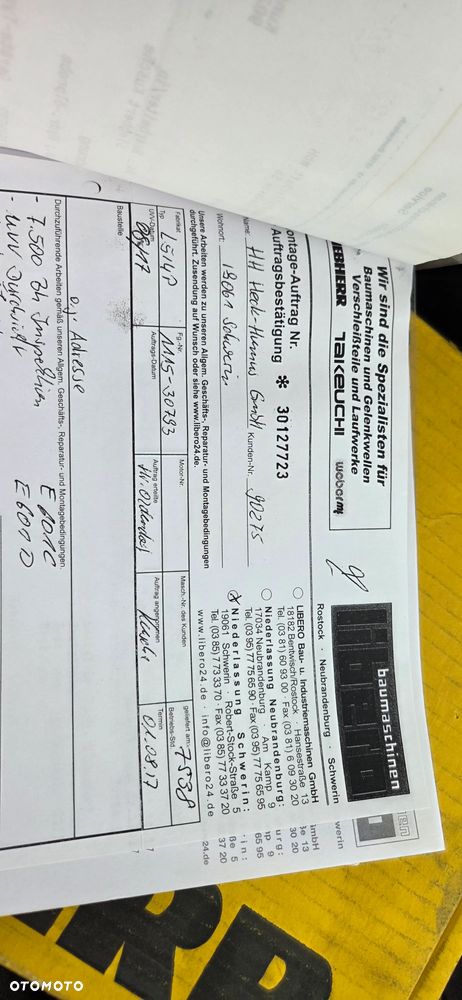 Wir sind die Spezialisten für
Baumaschinen und Gelenkwellen
Verschleißteile und Laufwerke
LIEBHERR TAKEUCHI
baumaschinen
Rostock · Neubrandenburg · Schwerin
LIBERO Bau- u. Industriemaschinen GmbH
18182 Bentwisch/Rostock · Hansestraße 13
Tel. (03 81) 60 93 00 · Fax (03 81) 6 09 30 20
Niederlassung Neubrandenburg:
17034 Neubrandenburg · Am Kamp 9
Tel. (03 95) 77 75 65 90 · Fax (03 95) 77 75 65 95
Niederlassung Schwerin:
19061 Schwerin · Robert-Stock-Straße 5
Tel. (03 85) 7 73 33 70 · Fax (03 85) 77 33 37 20
www.libero24.de · info@libero24.de
ontage-Auftrag Nr.
Auftragsbestätigung * 30127723
Name: HH Heck-Humus GmbH Kunden-Nr. 90275
Wohnort: 19061 Schwerin
Unsere Arbeiten werden zu unseren Allgem. Geschäfts-, Reparatur- und Montagebedingungen
durchgeführt. Zusendung auf Wunsch oder siehe www.libero24.de.
Fabrikat
Typ L514P
Fg.-Nr. 1115-30793
Motor-Nr.
Masch.-Nr. des Kunden
geliefert am:
Betriebs-Std. 7538
UVV-Datum 08/17
Auftrags-Datum
Auftrag erteilte
Auftrag angenommen
Termin 01.08.17
Baustelle
o.g. Adresse
Durchzuführende Arbeiten gemäß unseren Allgem. Geschäfts-, Reparatur- und Montagebedingungen.
- 7.500 Bh Inspektion
- UVV Durchsicht
E 6000
OTOMOTO